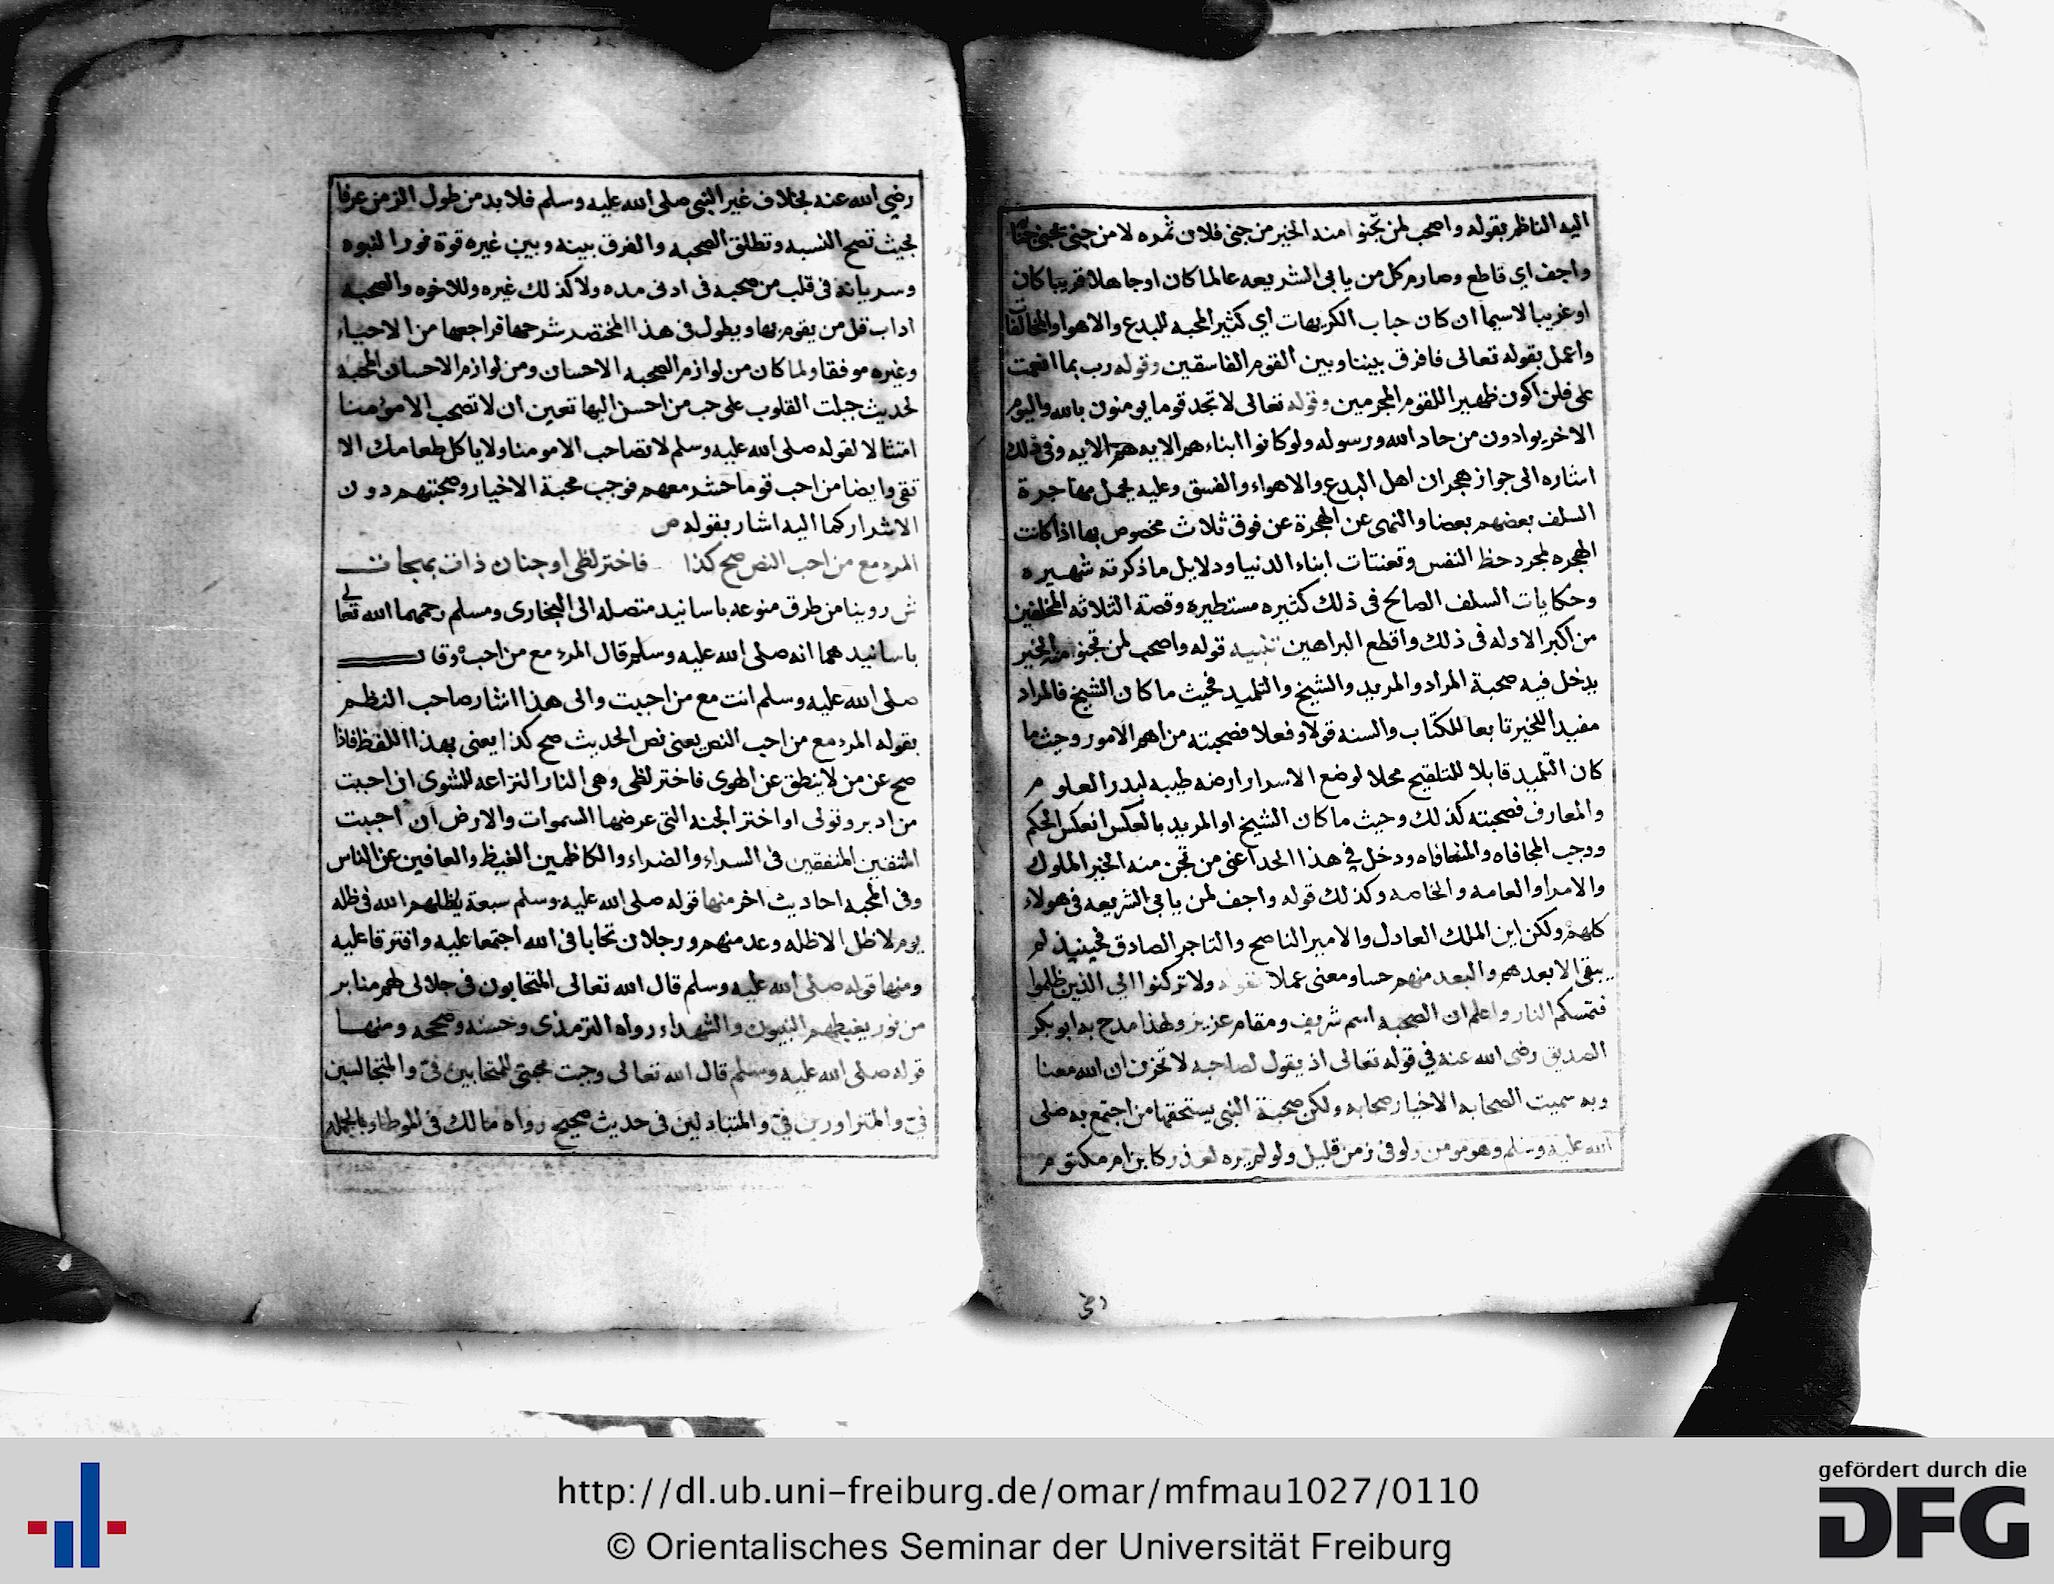 اليه الناظر بقوله واصحب لمن تجنوا منه الخير من جنى فلان ثمره لا من جنى يجنى
واجف اي قاطع وصارم كل من يابى الشريعه عالما كان او جاهلا قريبا كان
او غريبا لاسيما ان كان جباب الكريهات اي كثير المحبه للبدع والاهوا والمخالفات
واعمل بقوله تعالى فافرق بيننا وبين القوم الفاسقين وقوله رب بما انعمت
على فلن اكون ظهيرا للقوم المجرمين وقوله تعالى لا تجد قوما يومنون بالله واليوم
الاخر يوادون من حاد الله ورسوله ولو كانوا ابناءهم الايه وفى ذلك
اشاره الى جواز هجران اهل البدع والاهواء والفسق وعليه يحمل مهاجرة
السلف بعضهم بعضا والنهى عن الهجرة عن فوق ثلاث مخصوص بها اذا كانت
الهجره لمجرد حظ النفس وتعنتات ابناء الدنيا ودلايل ما ذكرته شهيره
وحكايات السلف الصالح فى ذلك كثيره مستطيرة وقصة الثلاثه المخلفين
من اكبر الادله فى ذلك واقطع البراهين تنبيه قوله واصحب لمن تجنوا منه الخير
يدخل فيه صحبة المراد والمريد والشيخ والتلميد فحيث ما كان الشيخ فالمراد
مفيدا للخير تابعا للكتاب والسنه قولا وفعلا فصحبته من اهم الامور وحيث ما
كان التلميد قابلا للتلقيح محلا لوضع الاسرار ارضه طيبه لبدر العلوم
والمعارف فصحبته كذلك وحيث ما كان الشيخ او المريد بالعكس انعكس الحكم
ووجب المجافاه ودخل في هذا الحد اعنى من تجن منه الخير الملوك
والامرا والعامه والخاصه وكذلك قوله واجف لمن يابى الشريعه فى هولاء
كلهم ولكن اين الملك العادل والامير الناصح والتاجر الصادق فحينيذ لم
يبقى الا بعدهم والبعد منهم حسا ومعنى عملا بقوله ولا تركنوا الي الذين ظلموا
فتمسكم النار واعلم ان الصحبه اسم شريف ومقام عزيز ولهذا مدح به ابو بكر
الصديق رضى الله عنه في قوله تعالى اذ يقول لصاحبه لا تحزن ان الله معنا
وبه سميت الصحابه الاخيار صحابه ولكن صحبة النبى يستحقها من اجتمع به صلى
الله عليه وسلم وهو مومن ولو فى زمن قليل ولو لم يره لعذر كابن ام مكتوم
رضى
رضي الله عنه بخلاف غير النبى صلى الله عليه وسلم فلا بد من طول الزمن عرفا
بحيث تصح النسبه وتطلق الصحبه والفرق بينه وبين غيره قوة نور النبوه
وسريانه فى قلب من صحبه فى ادنى مده ولا كذلك غيره وللاخوه والصحبه
اداب قل من يقوم بها ويطول فى هذا المختصر شرحها فراجعها من الاحياء
وغيره موفقا ولما كان من لوازم الصحبه الاحسان ومن لوازم الاحسان المحبه
لحديث جبلت القلوب على حب من احسن اليها تعين ان لا تصحب الا مومنا
امتثالا لقوله صلى الله عليه وسلم لا تصاحب الا مومنا ولا ياكل طعامك الا
تقى وايضا من احب قوما حشر معهم فوجب محبة الاخيار وصحبتهم دون
الاشرار كما اليه اشار بقوله ص
المرء مع من احب النص صح كذا فاختر لظى او جنان ذات بهجات
ش روينا من طرق منوعه باسانيد متصله الى البخارى ومسلم رحمهما الله تعالى
باسانيدهما انه صلى الله عليه وسلم قال المرء مع من احب وقال
صلى الله عليه وسلم انت مع من احببت والى هذا اشار صاحب النظم
بقوله المرء مع من احب النص يعنى نص الحديث صح كذا يعنى بهذا اللفظ فاذا
صح عن من لا ينطق عن الهوى فاختر لظى وهى النار النزاعه للشوى ان احببت
من ادبر وتولى او اختر الجنه التى عرضها السموات والارض ان احببت
المتقين المنفقين فى السراء والضراء والكاظمين الغيظ والعافين عن الناس
وفى المحبه احاديث اخر منها قوله صلى الله عليه وسلم سبعة يظلهم الله فى ظله
يوم لا ظل الا ظله وعد منهم ورجلان تحابا فى الله اجتمعا عليه وافترقا عليه
ومنها قوله صلى الله عليه وسلم قال الله تعالى المتحابون فى جلالى لهم منابر
من نور يغبطهم النبيون والشهداء رواه الترمذى وحسنه وصححه ومنها
قوله صلى الله عليه وسلم قال الله تعالى وجبت محبتى للمتحابين فيّ والمتجالسين
فيّ والمتزاورين فيّ والمتباذلين فى حديث صحيح رواه مالك فى الموطا وبالجمله
http://dl.ub.uni-freiburg.de/omar/mfmau1027/0110
© Orientalisches Seminar der Universität Freiburg
gefördert durch die
DFG